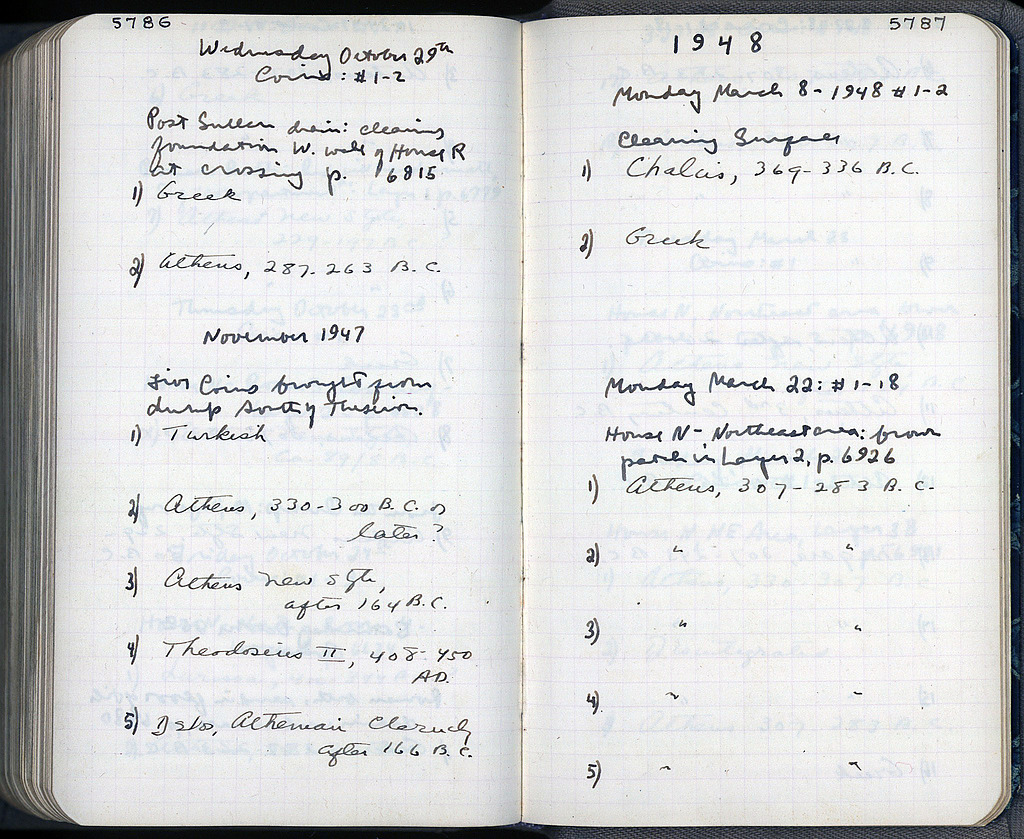 5786
Wednesday October 29th
Coins: #1-2
Post Sullan drain: cleaning
foundation W. wall of House R
at crossing p. 6815
1) Greek
2) Athens, 287-263 B.C.
November 1947
Five Coins brought from
dump South of Theseion.
1) Turkish
2) Athens, 330-300 B.C. or
later?
3) Athens new Style,
after 164 B.C.
4) Theodosius II, 408-450
AD.
5) Delos, Athenian Cleruchy
after 166 B.C.
5787
1948
Monday March 8-1948 #1-2
Cleaning Surface
1) Chalcis, 369-336 B.C.
2) Greek
Monday March 22: #1-18
House N - Northeast area: brown
patch in Layer 2, p. 6926
1) Athens, 307-283 B.C.
2) " "
3) " "
4) " "
5) " "